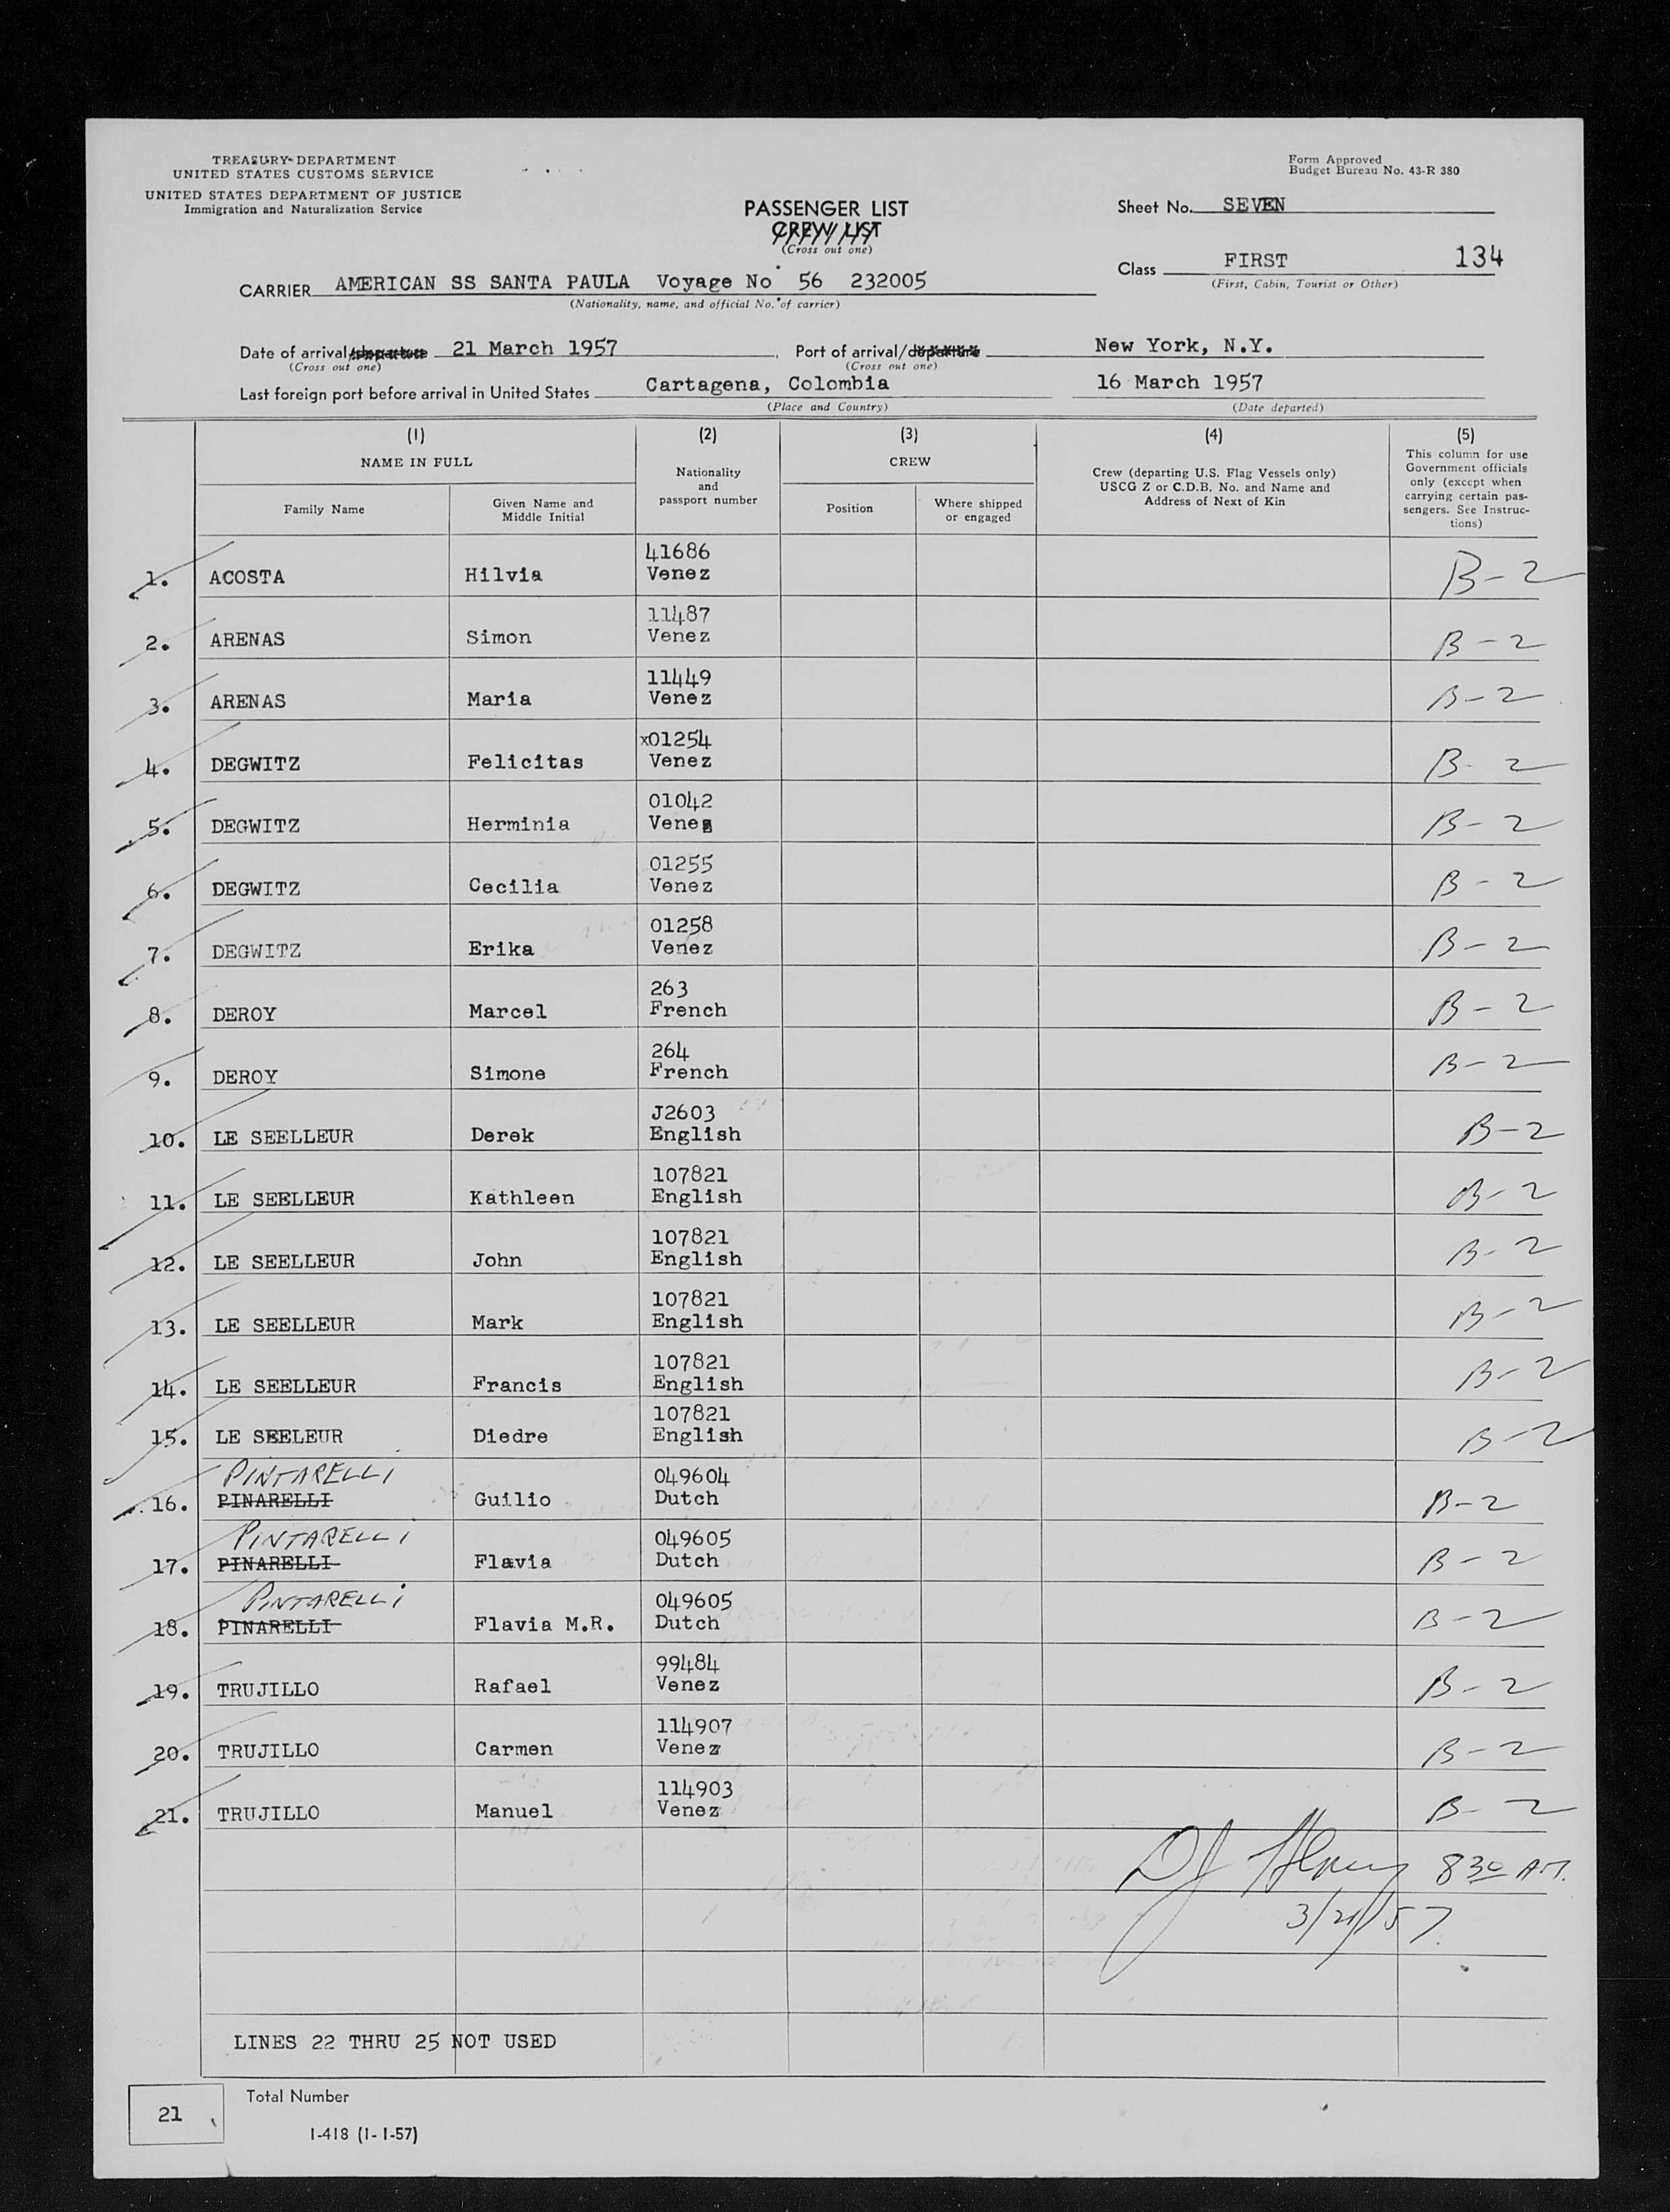 TREASURY DEPARTMENT
UNITED STATES CUSTOMS SERVICE
UNITED STATES DEPARTMENT OF JUSTICE
Immigration and Naturalization Service
Form Approved
Budget Bureau No. 43-R 380
PASSENGER LIST
CREW LIST
(Cross out one)
Sheet No. SEVEN
Class FIRST 134
(First, Cabin, Tourist or Other)
CARRIER AMERICAN SS SANTA PAULA Voyage No 56 232005
(Nationality, name, and official No. of carrier)
Date of arrival/departure 21 March 1957 Port of arrival/departure New York, N.Y.
(Cross out one) (Cross out one)
Last foreign port before arrival in United States Cartagena, Colombia 16 March 1957
(Place and Country) (Date departed)
(1) (2) (3) (4) (5)
NAME IN FULL
Family Name
Given Name and
Middle Initial
Nationality
and
passport number
CREW
Position
Where shipped
or engaged
Crew (departing U.S. Flag Vessels only)
USCG Z or C.D.B. No. and Name and
Address of Next of Kin
This column for use
Government officials
only (except when
carrying certain pas-
sengers. See Instruc-
tions)
41686
1. ACOSTA Hilvia Venez B-2
11487
2. ARENAS Simon Venez B-2
11449
3. ARENAS Maria Venez B-2
x01254
4. DEGWITZ Felicitas Venez B-2
01042
5. DEGWITZ Herminia Venez B-2
01255
6. DEGWITZ Cecilia Venez B-2
01258
7. DEGWITZ Erika Venez B-2
263
8. DEROY Marcel French B-2
264
9. DEROY Simone French B-2
J2603
10. LE SEELLEUR Derek English B-2
107821
11. LE SEELLEUR Kathleen English B-2
107821
12. LE SEELLEUR John English B-2
107821
13. LE SEELLEUR Mark English B-2
107821
14. LE SEELLEUR Francis English B-2
107821
15. LE SEELEUR Diedre English B-2
PINTARELLI 049604
16. PINARELLI Guilio Dutch B-2
PINTARELLI 049605
17. PINARELLI Flavia Dutch B-2
PINTARELLI 049605
18. PINARELLI Flavia M.R. Dutch B-2
99484
19. TRUJILLO Rafael Venez B-2
114907
20. TRUJILLO Carmen Venez B-2
114903
21. TRUJILLO Manuel Venez B-2
8 30 AM.
3/21/57
LINES 22 THRU 25 NOT USED
21 Total Number
I-418 (1-1-57)